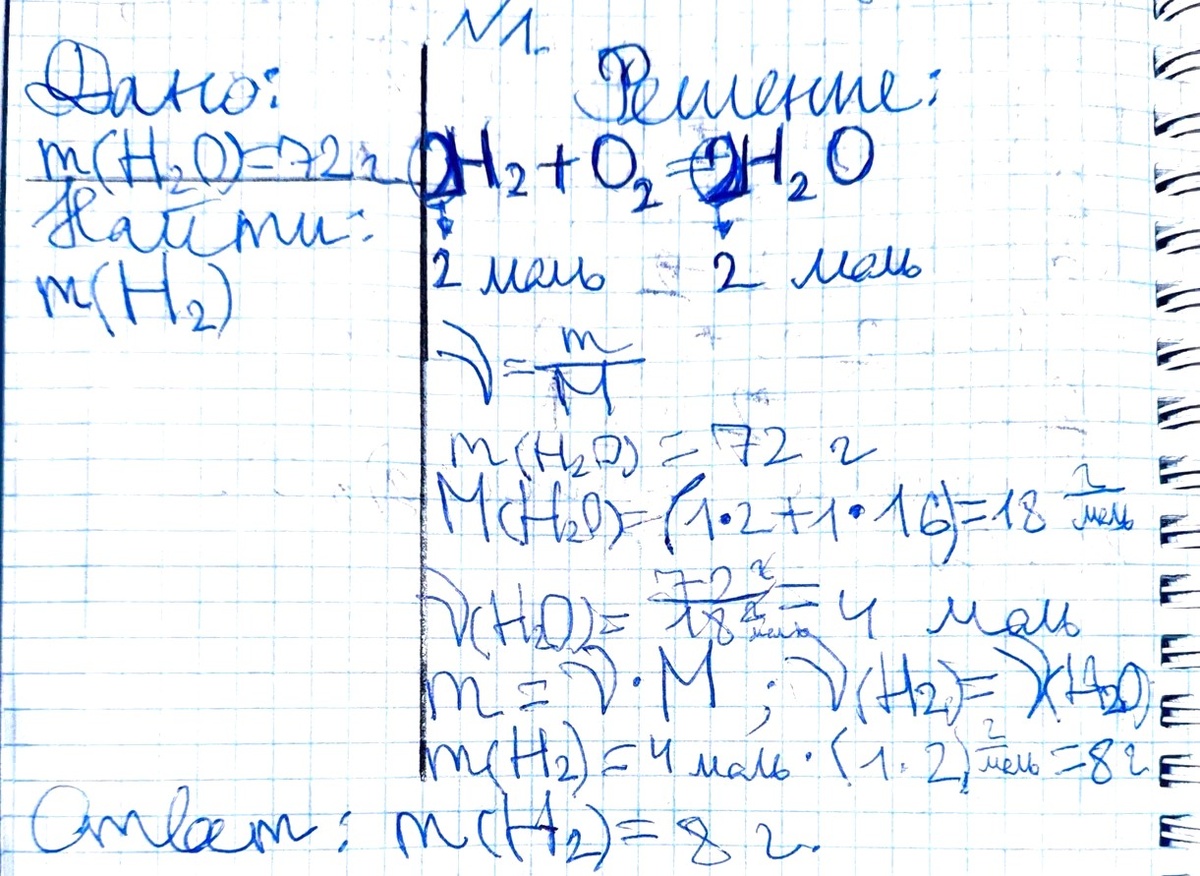 №1.
Дано:
m(H₂O)=72г
Найти:
m(H₂)
Решение:
2H₂+O₂=2H₂O
2 моль 2 моль
ν=m/M
m(H₂O)=72 г
M(H₂O)=(1•2+1•16)=18 г/моль
ν(H₂O)=72 г/18 г/моль=4 моль
m=ν·M ; ν(H₂)=ν(H₂O)
m(H₂)=4 моль·(1·2) г/моль=8г.
Ответ: m(H₂)=8 г.